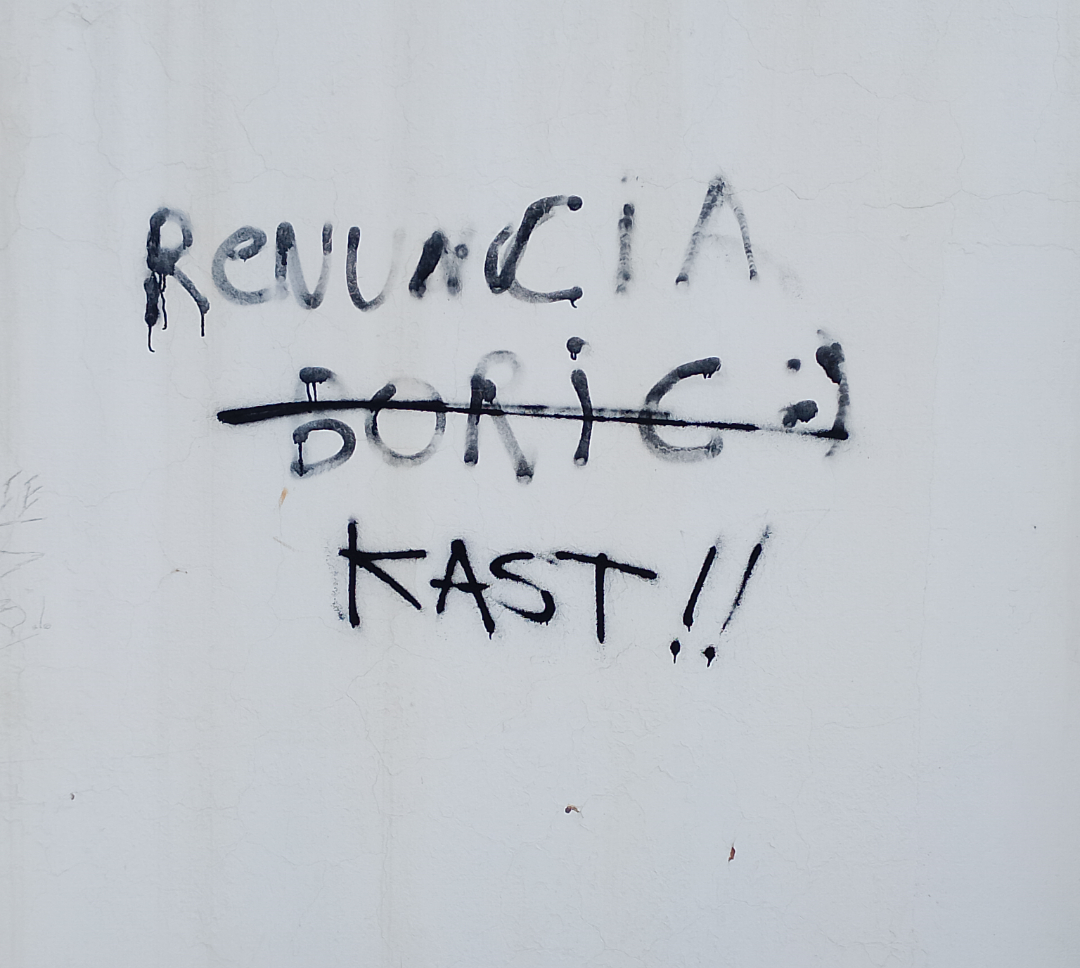 RENUNCIA
BORIC :)
KAST!!